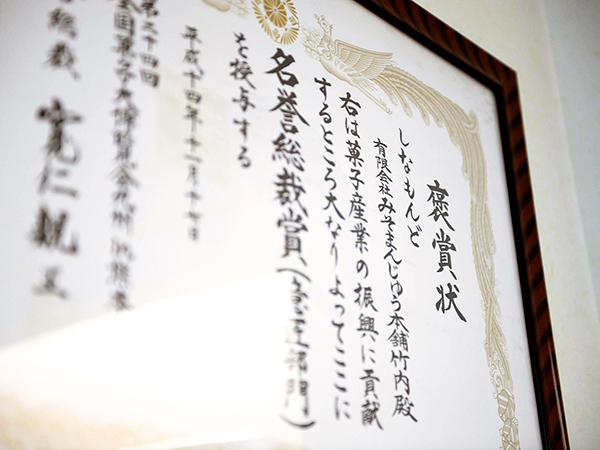 褒賞状
しなもんど
有限会社みそまんじゅう本舗竹内殿
右は菓子産業の振興に貢献
するところ大なりよってここに
名誉総裁賞(意匠部門)
を授与する
平成十四年十一月十七日
第二十四回
全国菓子大博覧会九州in熊本
総裁 寬仁親王